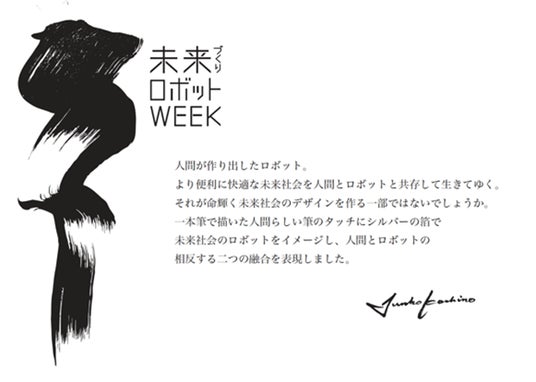 未来づくり
ロボット
WEEK
人間が作り出したロボット。
より便利に快適な未来社会を人間とロボットと共存して生きてゆく。
それが命輝く未来社会のデザインを作る一部ではないでしょうか。
一本筆で描いた人間らしい筆のタッチにシルバーの箔で
未来社会のロボットをイメージし、人間とロボットの
相反する二つの融合を表現しました。
Junko Koshino